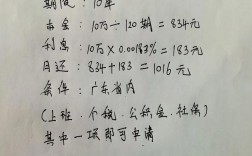 期限：10年
本金：10万÷120期＝834元
利息：10万×0.00183%＝183元
月还：834+183＝1016元
条件：广东省内
(上班、个税、公积金、社保)
其中一项即可申请